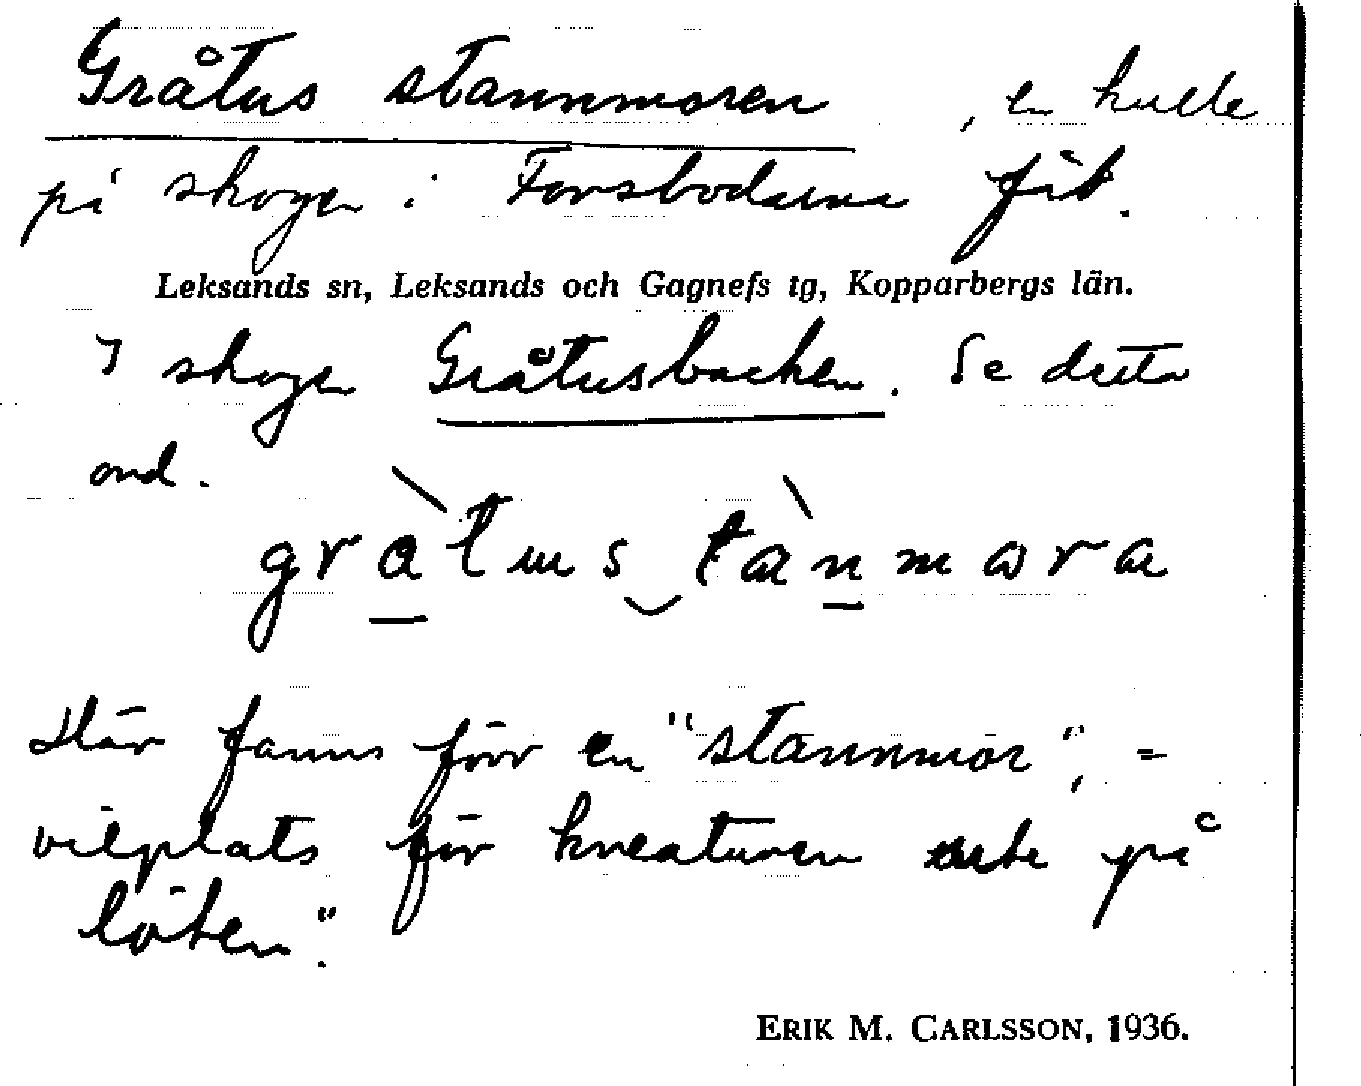 Gråtus stannmoren, en kulle
på skogen i Forsbodarna fäb.
Leksands sn, Leksands och Gagnefs tg, Kopparbergs län.
I skogen Gråtusbacken. Se detta
ord.
gràtus tànmora
Här fanns förr en "stannmor", =
vilplats för kreaturen ute på
löten".
ERIK M. CARLSSON, 1936.